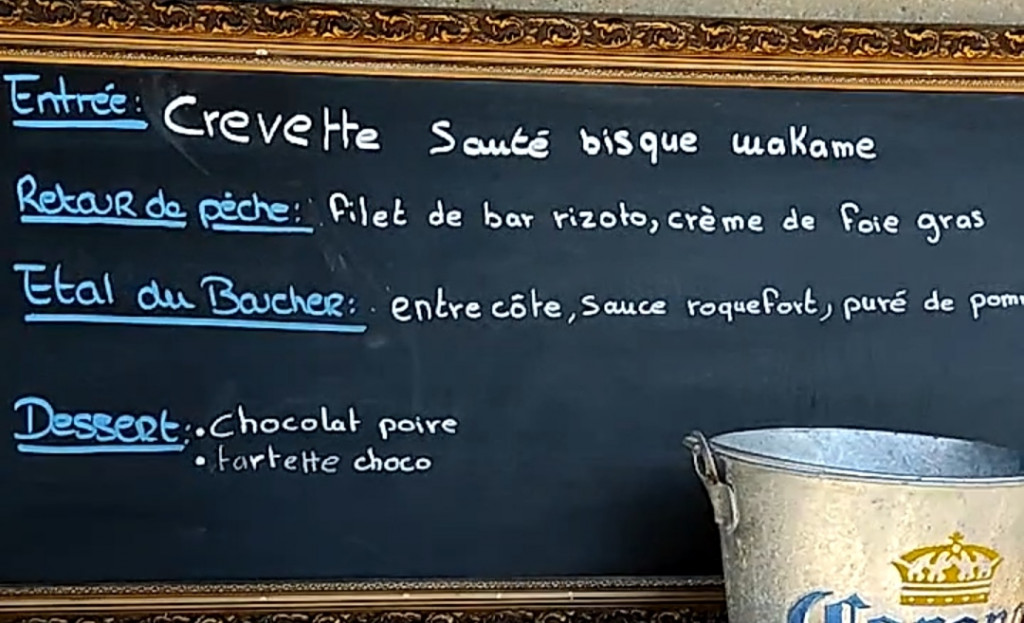 Entrée: Crevette Sauté bisque wakame
Retour de pêche: filet de bar rizoto, crème de foie gras
Etal du Boucher: entre côte, sauce roquefort, puré de pom
Dessert: • chocolat poire
• tartette choco